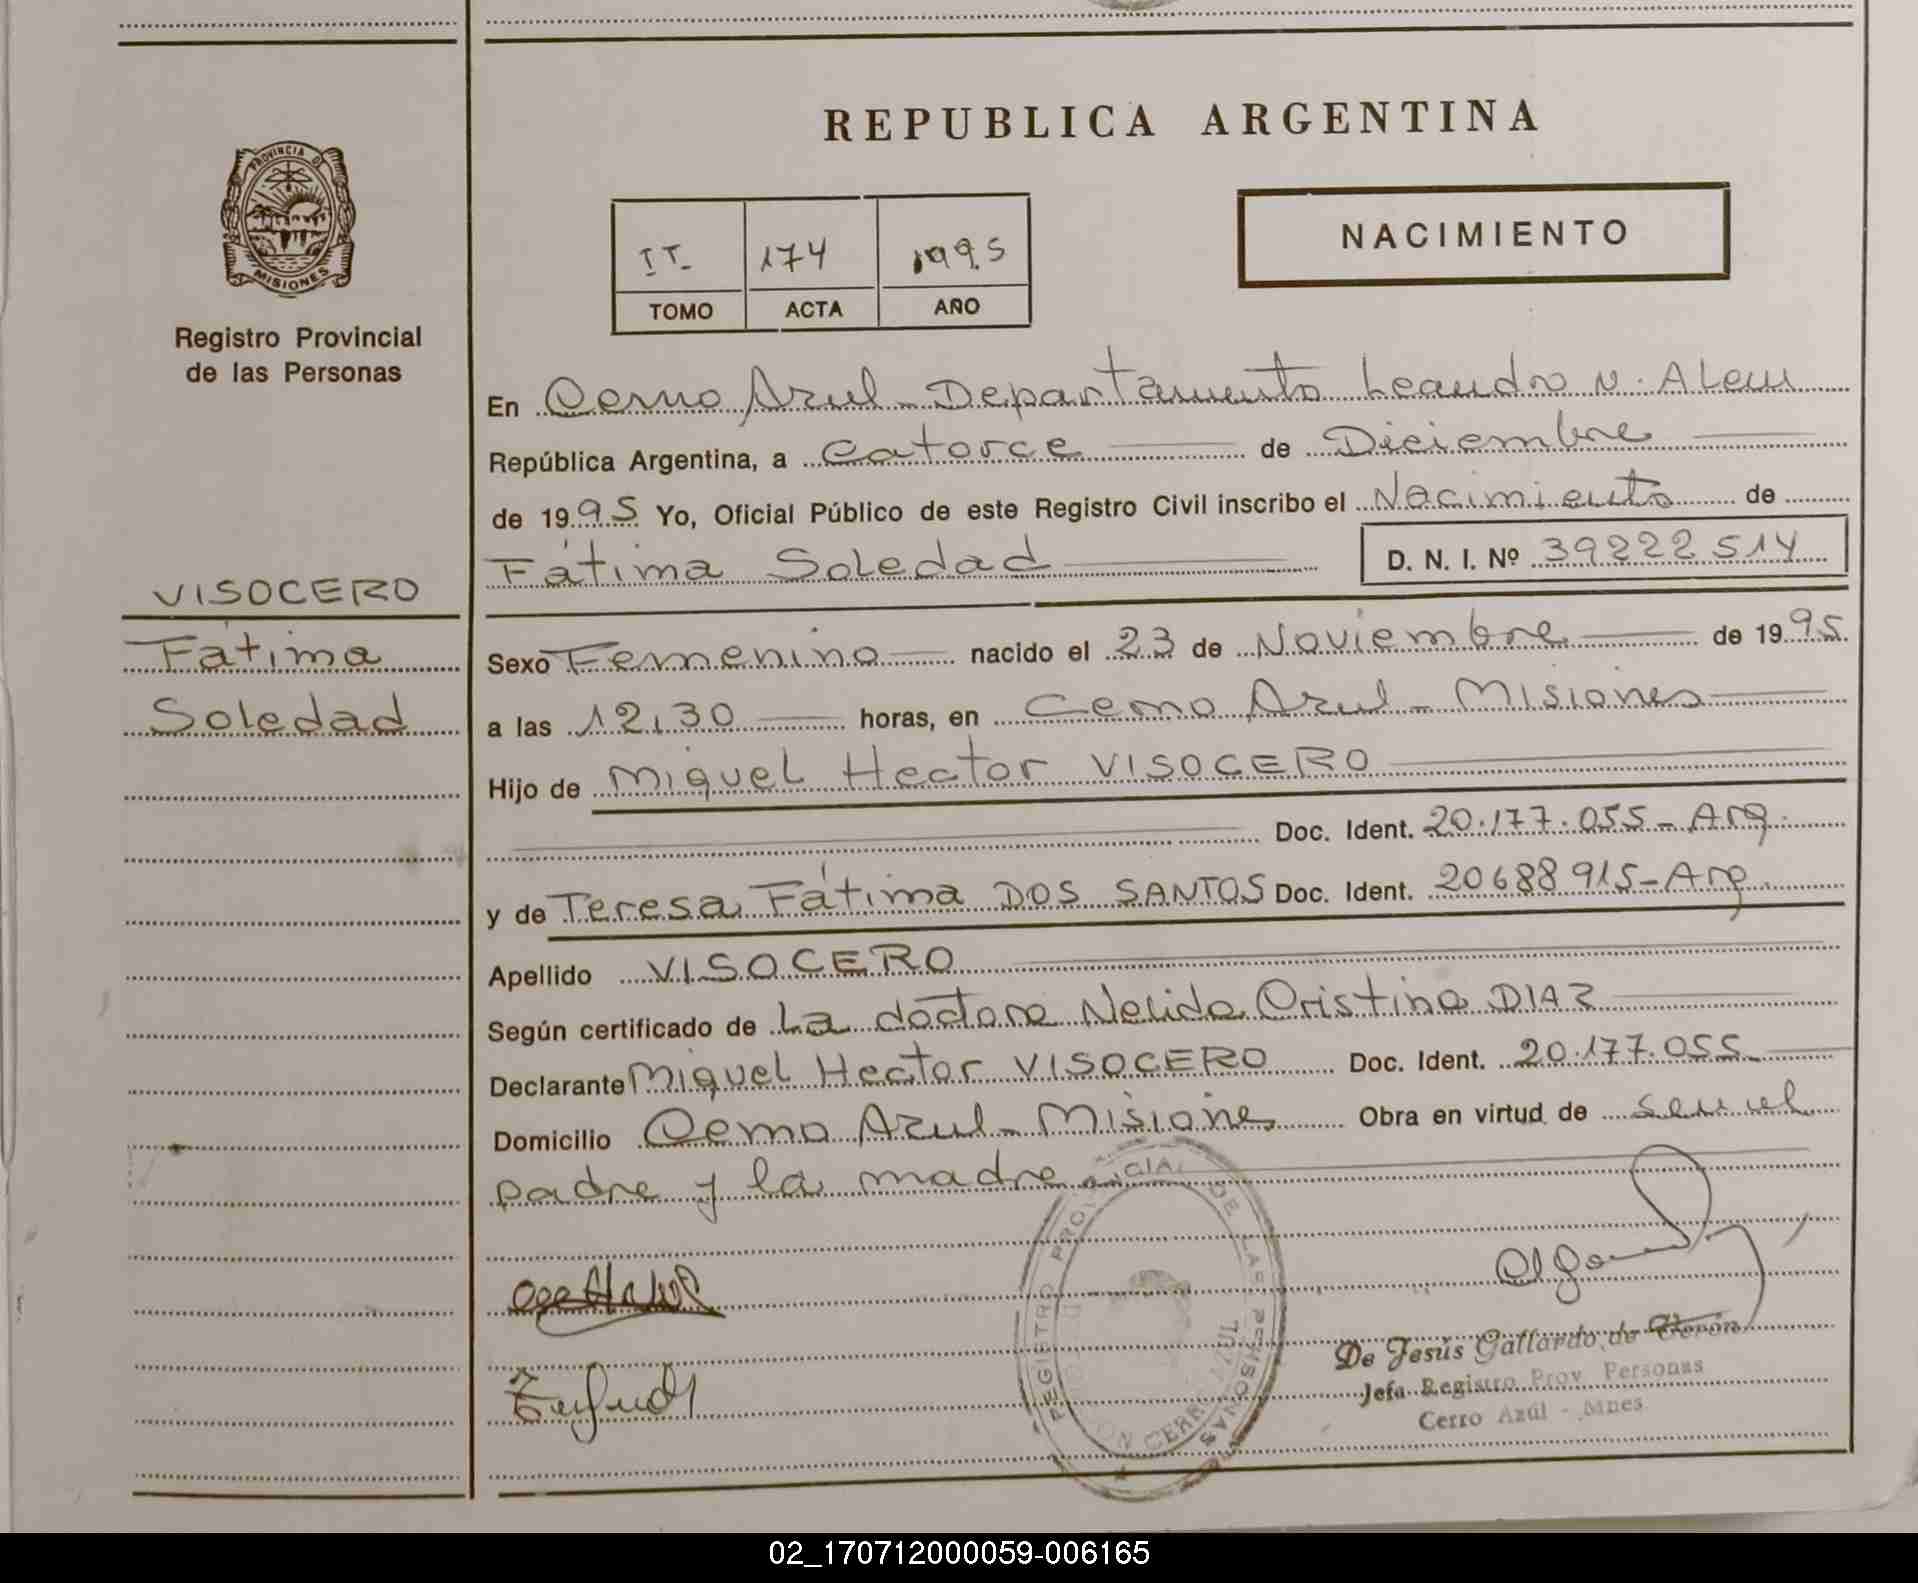 REPUBLICA ARGENTINA
PROVINCIA DE
MISIONES
Registro Provincial
de las Personas
II 174 1995
TOMO ACTA AÑO
NACIMIENTO
En Cerro Azul - Departamento Leandro N. Alem
República Argentina, a Catorce de Diciembre
de 1995 Yo, Oficial Público de este Registro Civil inscribo el Nacimiento de
Fátima Soledad D. N. I. Nº 39222514
VISOCERO
Fátima
Soledad
Sexo Femenino nacido el 23 de Noviembre de 1995.
a las 12,30 horas, en Cerro Azul - Misiones
Hijo de Miguel Hector VISOCERO
Doc. Ident. 20.177.055 - Arg.
y de Teresa Fátima DOS SANTOS Doc. Ident. 20688915 - Arg.
Apellido VISOCERO
Según certificado de La doctora Nelida Cristina DIAZ
Declarante Miguel Hector VISOCERO Doc. Ident. 20.177.055
Domicilio Cerro Azul - Misiones Obra en virtud de ser el
padre y la madre
REGISTRO PROVINCIAL DE LAS PERSONAS
De Jesús Gallardo de Terón
Jefa Registro Prov. Personas
Cerro Azúl - Mnes
02_170712000059-006165